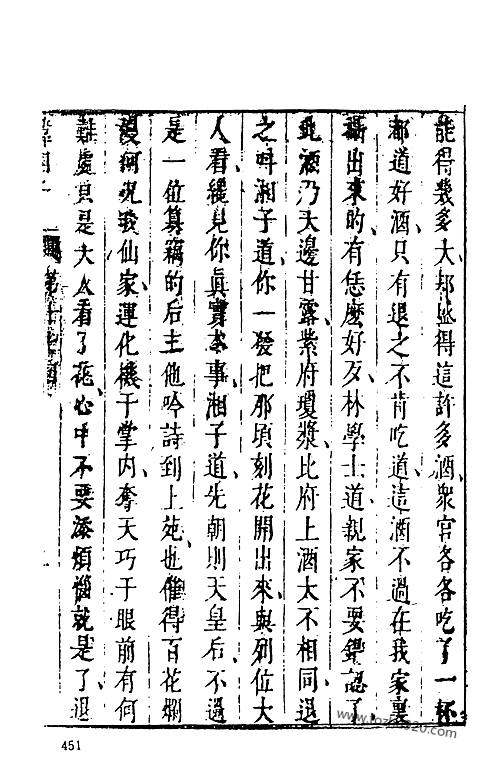 能得幾多大却盛得這許多酒衆官各各吃了一杯
都道好酒只有退之不肯吃道這酒不過在我家裏
攝出來的有恁麽好歹林學士道親家不要錯認了
此酒乃天邊甘露紫府瓊漿比府上酒大不相同退
之叫湘子道你一發把那頃刻花開出來與列位大
人看纔見你眞實本事湘子道先朝則天皇后不過
是一位篡竊的后主他吟詩到上苑也催得百花爛
熳何况我仙家運化機于掌内奪天巧于眼前有何
難處只是大人看了花心中不要添煩惱就是了退
451